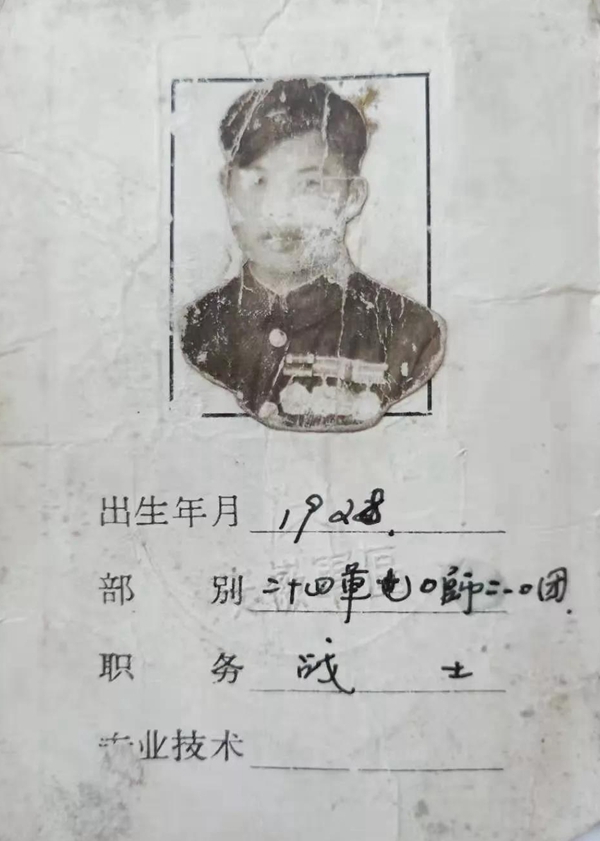 出生年月 1928.
部别 二十四軍七〇師二一〇团
职务 战士
专业技术